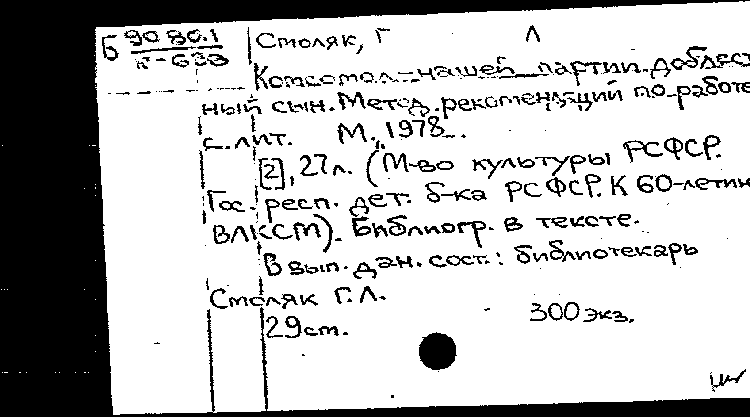 Б 90 80.1 Столяк, Г Л
К-633
Комсомол-нашей партии доблест
ный сын. Метод. рекомендаций по работе
с лит. М., 1978.
[2], 27л. (М-во культуры РСФСР.
Гос. респ. дет. б-ка РСФСР. К 60-летию
ВЛКСМ). Библиогр. в тексте.
В вып. дан. сост.: библиотекарь
Столяк Г.Л.
29см. 300 экз.